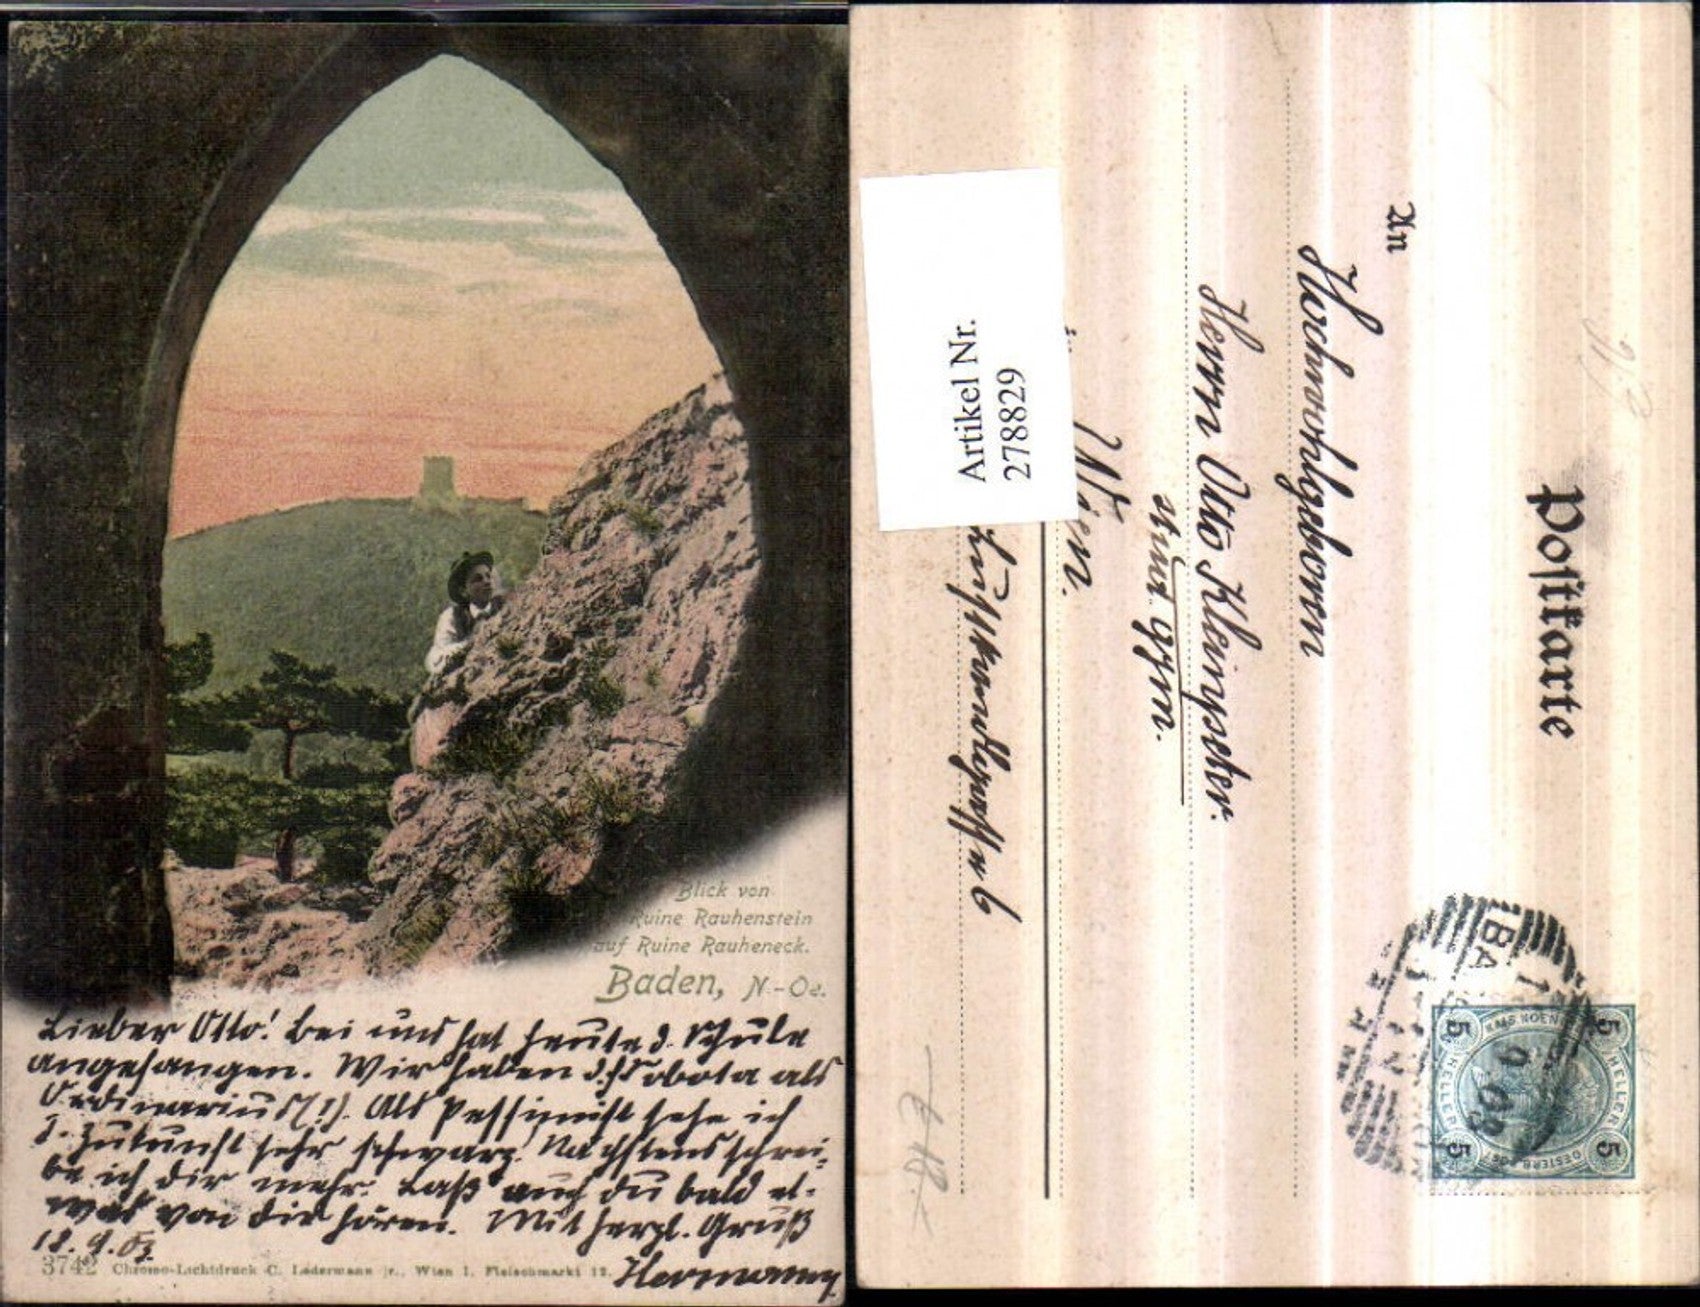 Blick von
Ruine Rauhenstein
auf Ruine Rauheneck.
Baden, N.-Oe.
Lieber Otto! Bei uns hat heute d. Schule
angefangen. Wir haben d. Sobota als
Ordinarius(!). Als Pessimist sehe ich
d. Zukunft sehr schwarz. Nächstens schrei-
be ich dir mehr. Laß auch du bald et-
was von dir hören. Mit herzl. Gruß
18. 9. 03. Hermann
3742 Chromo-Lichtdruck C. Ledermann jr., Wien I, Fleischmarkt 12.
Postkarte
An
Hochwohlgeboren
Herrn Otto Kleinpeter
stud. gym.
Wien.
6
Artikel Nr.
2788829
BA
9 03
5 HELLER 5
5 HELLER 5